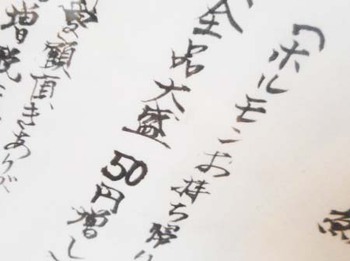 「ホルモンお持ち帰り
全品大盛 50円増し
額頂きありが
増税